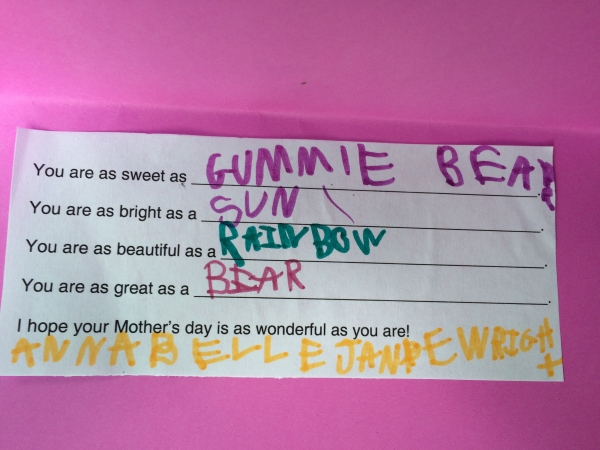 You are as sweet as GUMMIE BEARS.
You are as bright as a SUN.
You are as beautiful as a RAINBOW.
You are as great as a BEAR.
I hope your Mother's day is as wonderful as you are!
ANNABELLE JANE WRIGHT